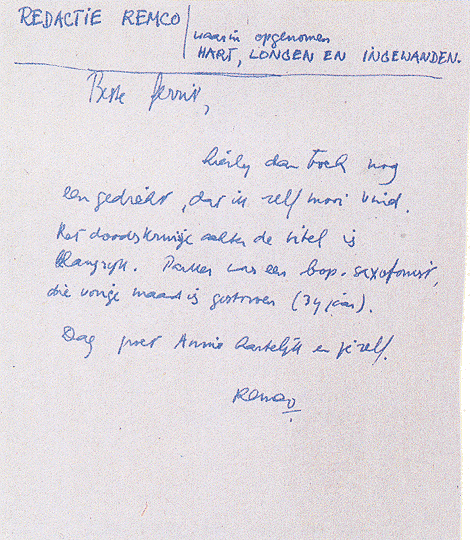 REDACTIE REMCO
waarin opgenomen
HART, LONGEN EN INGEWANDEN.
Beste Gerrit,
hierbij dan toch nog
een gedicht, dat ik zelf mooi vind.
Het doodskruisje achter de titel is
belangrijk. Parker was een bop-saxofonist,
die vorige maand is gestorven (34 jaar).
Dag groet Annie hartelijk en jezelf.
Remco